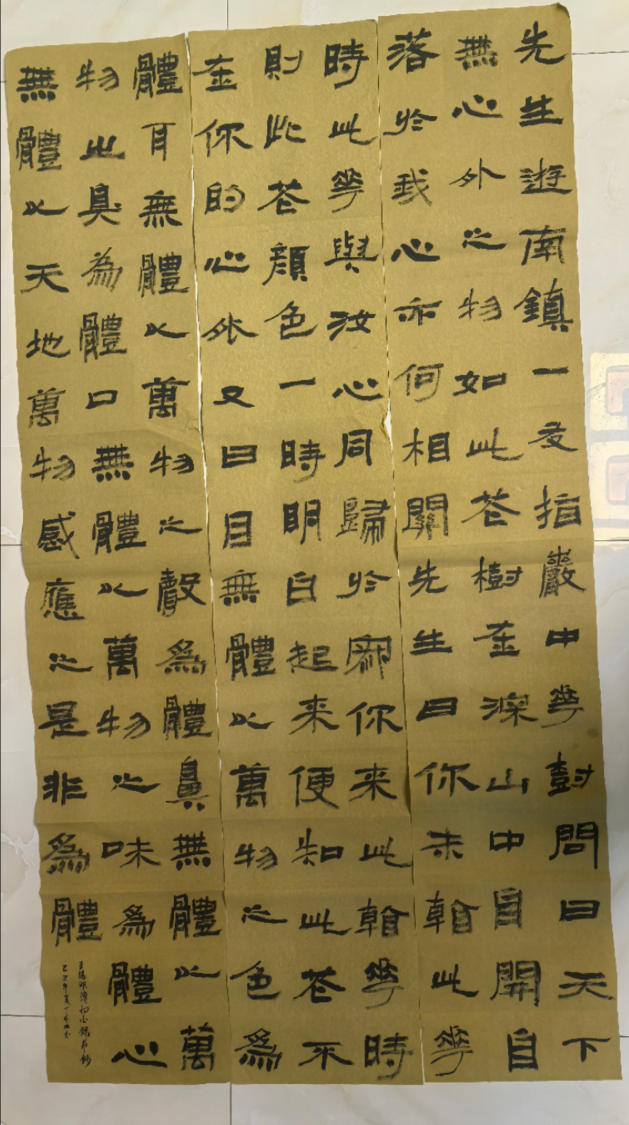 先生遊南鎮一友指巖中華尌問曰天下
無心外之物如此花樹在深山中自開自
落於我心亦何相關先生曰你未看此華
時此華與汝心同歸於寂你来此看華時
則此花顏色一時明白起来便知此花不
在你的心外又曰目無體以萬物之色為
體耳無體以萬物之聲為體鼻無體以萬
物之臭為體口無體以萬物之味為體心
無體以天地萬物感應之是非為體
王陽明傳習